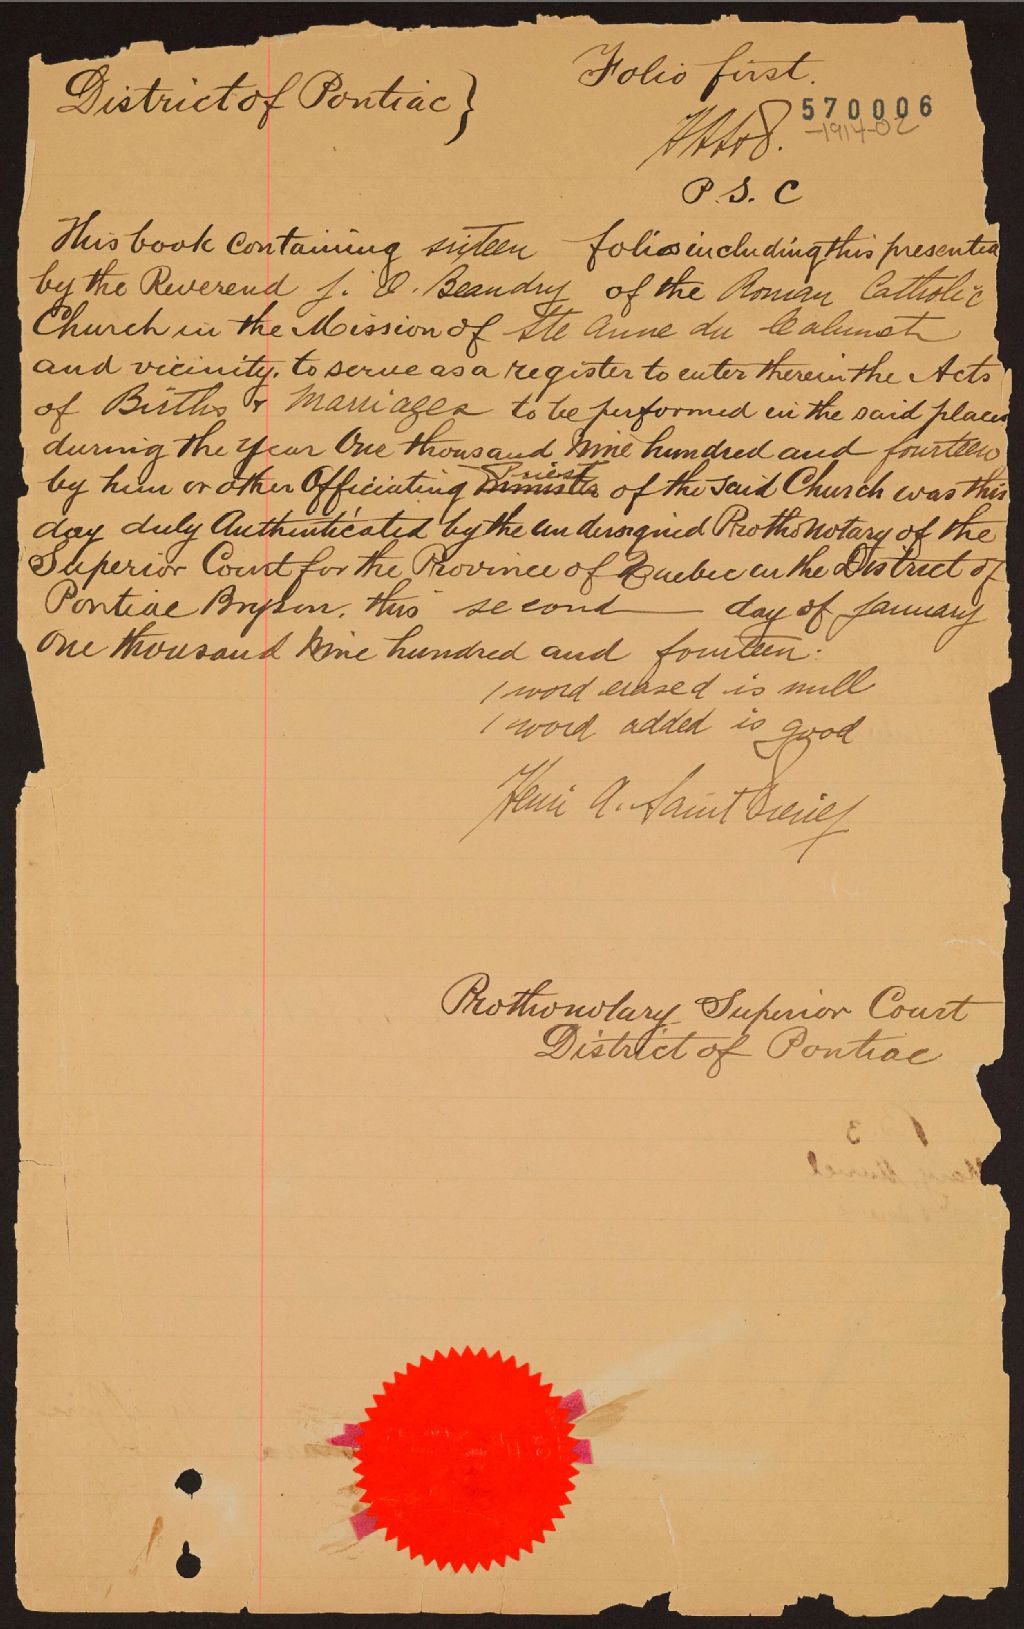 District of Pontiac }
Folio first.
570006
-1914-02
P. S. C
This book containing sixteen folios including this presented
by the Reverend J. O. Beaudry of the Roman Catholic
Church in the Mission of Ste Anne du Calumet
and vicinity. to serve as a register to enter therein the Acts
of Births & Marriages to be performed in the said places
during the year One thousand Nine hundred and fourteen
Priest
by him or other Officiating Minister of the said Church was this
day duly Authenticated by the undersigned Prothonotary of the
Superior Court for the Province of Quebec in the District of
Pontiac Bryson. this second day of January
One thousand Nine hundred and fourteen.
1 word erased is null
1 word added is good
Henri A. Saint Pierre
Prothonotary Superior Court
District of Pontiac